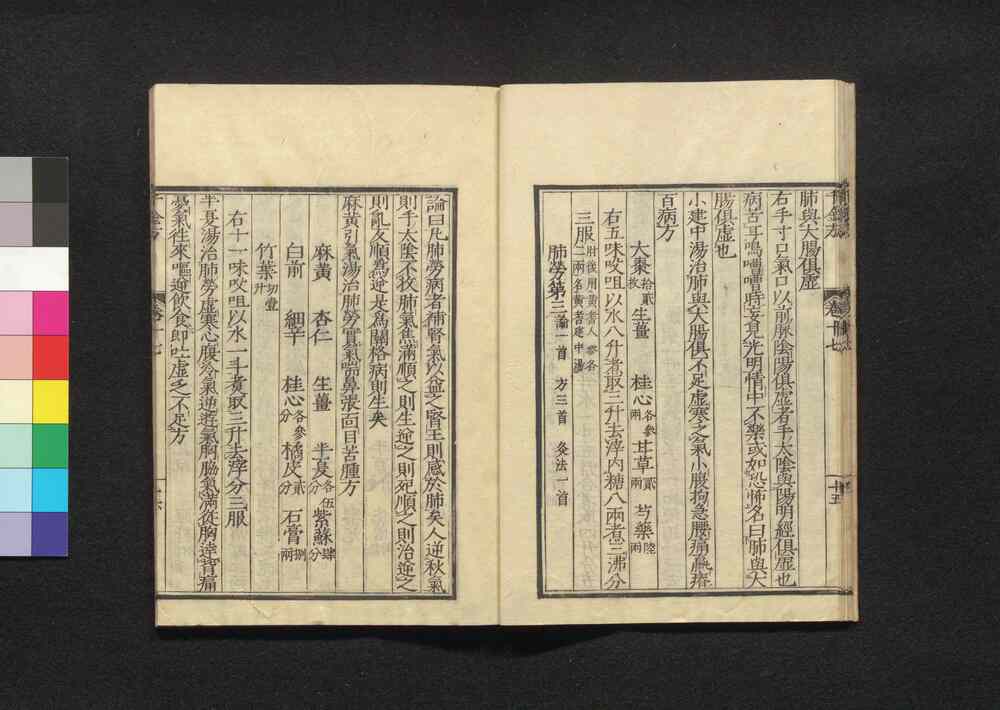 肺與大腸俱虛
右手寸口氣口以前脉陰陽俱虛者手太陰與陽明經俱虛也
病苦耳鳴嘈嘈時妄見光明情中不樂或如恐怖名曰肺與大
腸俱虛也
小建中湯治肺與大腸俱不足虛寒乏氣小腹拘急腰痛羸瘠
百病方
大棗拾貳枚 生薑 桂心各參兩 甘草貳兩 芍藥陸兩
右五味㕮咀以水八升煮取三升去滓内糖八兩煮三沸分
三服肘後用黄耆人參各二兩名黄耆建中湯
肺勞第三論一首 方三首 灸法一首
卷十七
十五
論曰凡肺勞病者補腎氣以益之腎王則感於肺矣人逆秋氣
則手太陰不收肺氣焦滿順之則生逆之則死順之則治逆之
則亂反順爲逆是爲關格病則生矣
麻黄引氣湯治肺勞實氣喘鼻張面目苦腫方
麻黄 杏仁 生薑 半夏各伍分 紫蘇肆分
白前 細辛 桂心各參分 橘皮貳分 石膏捌兩
竹葉切壹升
右十一味㕮咀以水一斗煮取三升去滓分三服
半夏湯治肺勞虛寒心腹冷氣逆遊氣胸脇氣滿從胸達背痛
憂氣往來嘔逆飲食即吐虛乏不足方